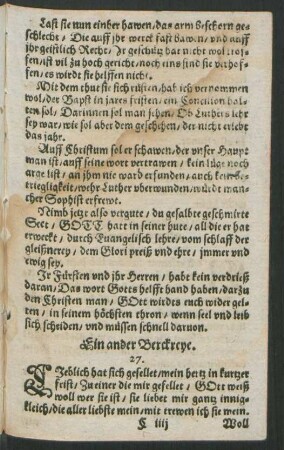 Laſt ſie nun einher hawen / das arm beſchorn ge-
ſchlecht / Die auff jhr werck faſt bawen / vnd auff
jhr geiſtlich Recht / Ir geſchütz hat nicht wol troſ-
fen / iſt vil zu hoch gericht / noch eins ſind ſie verhof-
fen / es wirdt ſie helffen nicht.
Mit dem thut ſie ſich rüſten / hab ich vernommen
wol / der Bapſt in jares friſten / ein Concilion hal-
ten ſol / Darinnen ſol man ſehen / Ob Luthers lehr
ſey war / wie ſol aber dem geſchehen / der nicht erlebt
das jar.
Auff Chriſtum ſol er ſchawen / der vnſer Haupt
man iſt / auff ſeine wort vertrawen / kein lüge noch
arge liſt / an jhm nie ward erfunden / auch kein be-
triegligkeit / wehr Luther vberwunden / würdt man-
cher Sophiſt erfrewt.
Nimb jetzt alſo vergute / du geſalbte geſchmirte
Sect / GOTT hatt in ſeiner hute / all die er hat
erweckt / durch Euangeliſch lehre / vom ſchlaff der
gleißnerey / dem Glori preiß vnd ehre / jmmer vnd
ewig ſey.
Ir Fürſten vnd jhr Herren / habt kein verdrieß
daran / Das wort Gotts helfft hand haben / darzu
den Chriſten man / GOtt wirdts euch wider gel-
ten / in ſeinem höchſten thron / wenn ſeel vnd leib
ſich ſcheiden / vnd müſſen ſchnell daruon.
Ein ander Berckreye.
27.
LIeblich hat ſich geſellet / mein hertz in kurtzer
friſt / Zu einer die mir gefellet / GOtt weiß
woll wer ſie iſt / ſie liebet mir gantz innig-
kleich / die aller liebſte mein / mit trewen ich ſie mein.
C iiij Woll